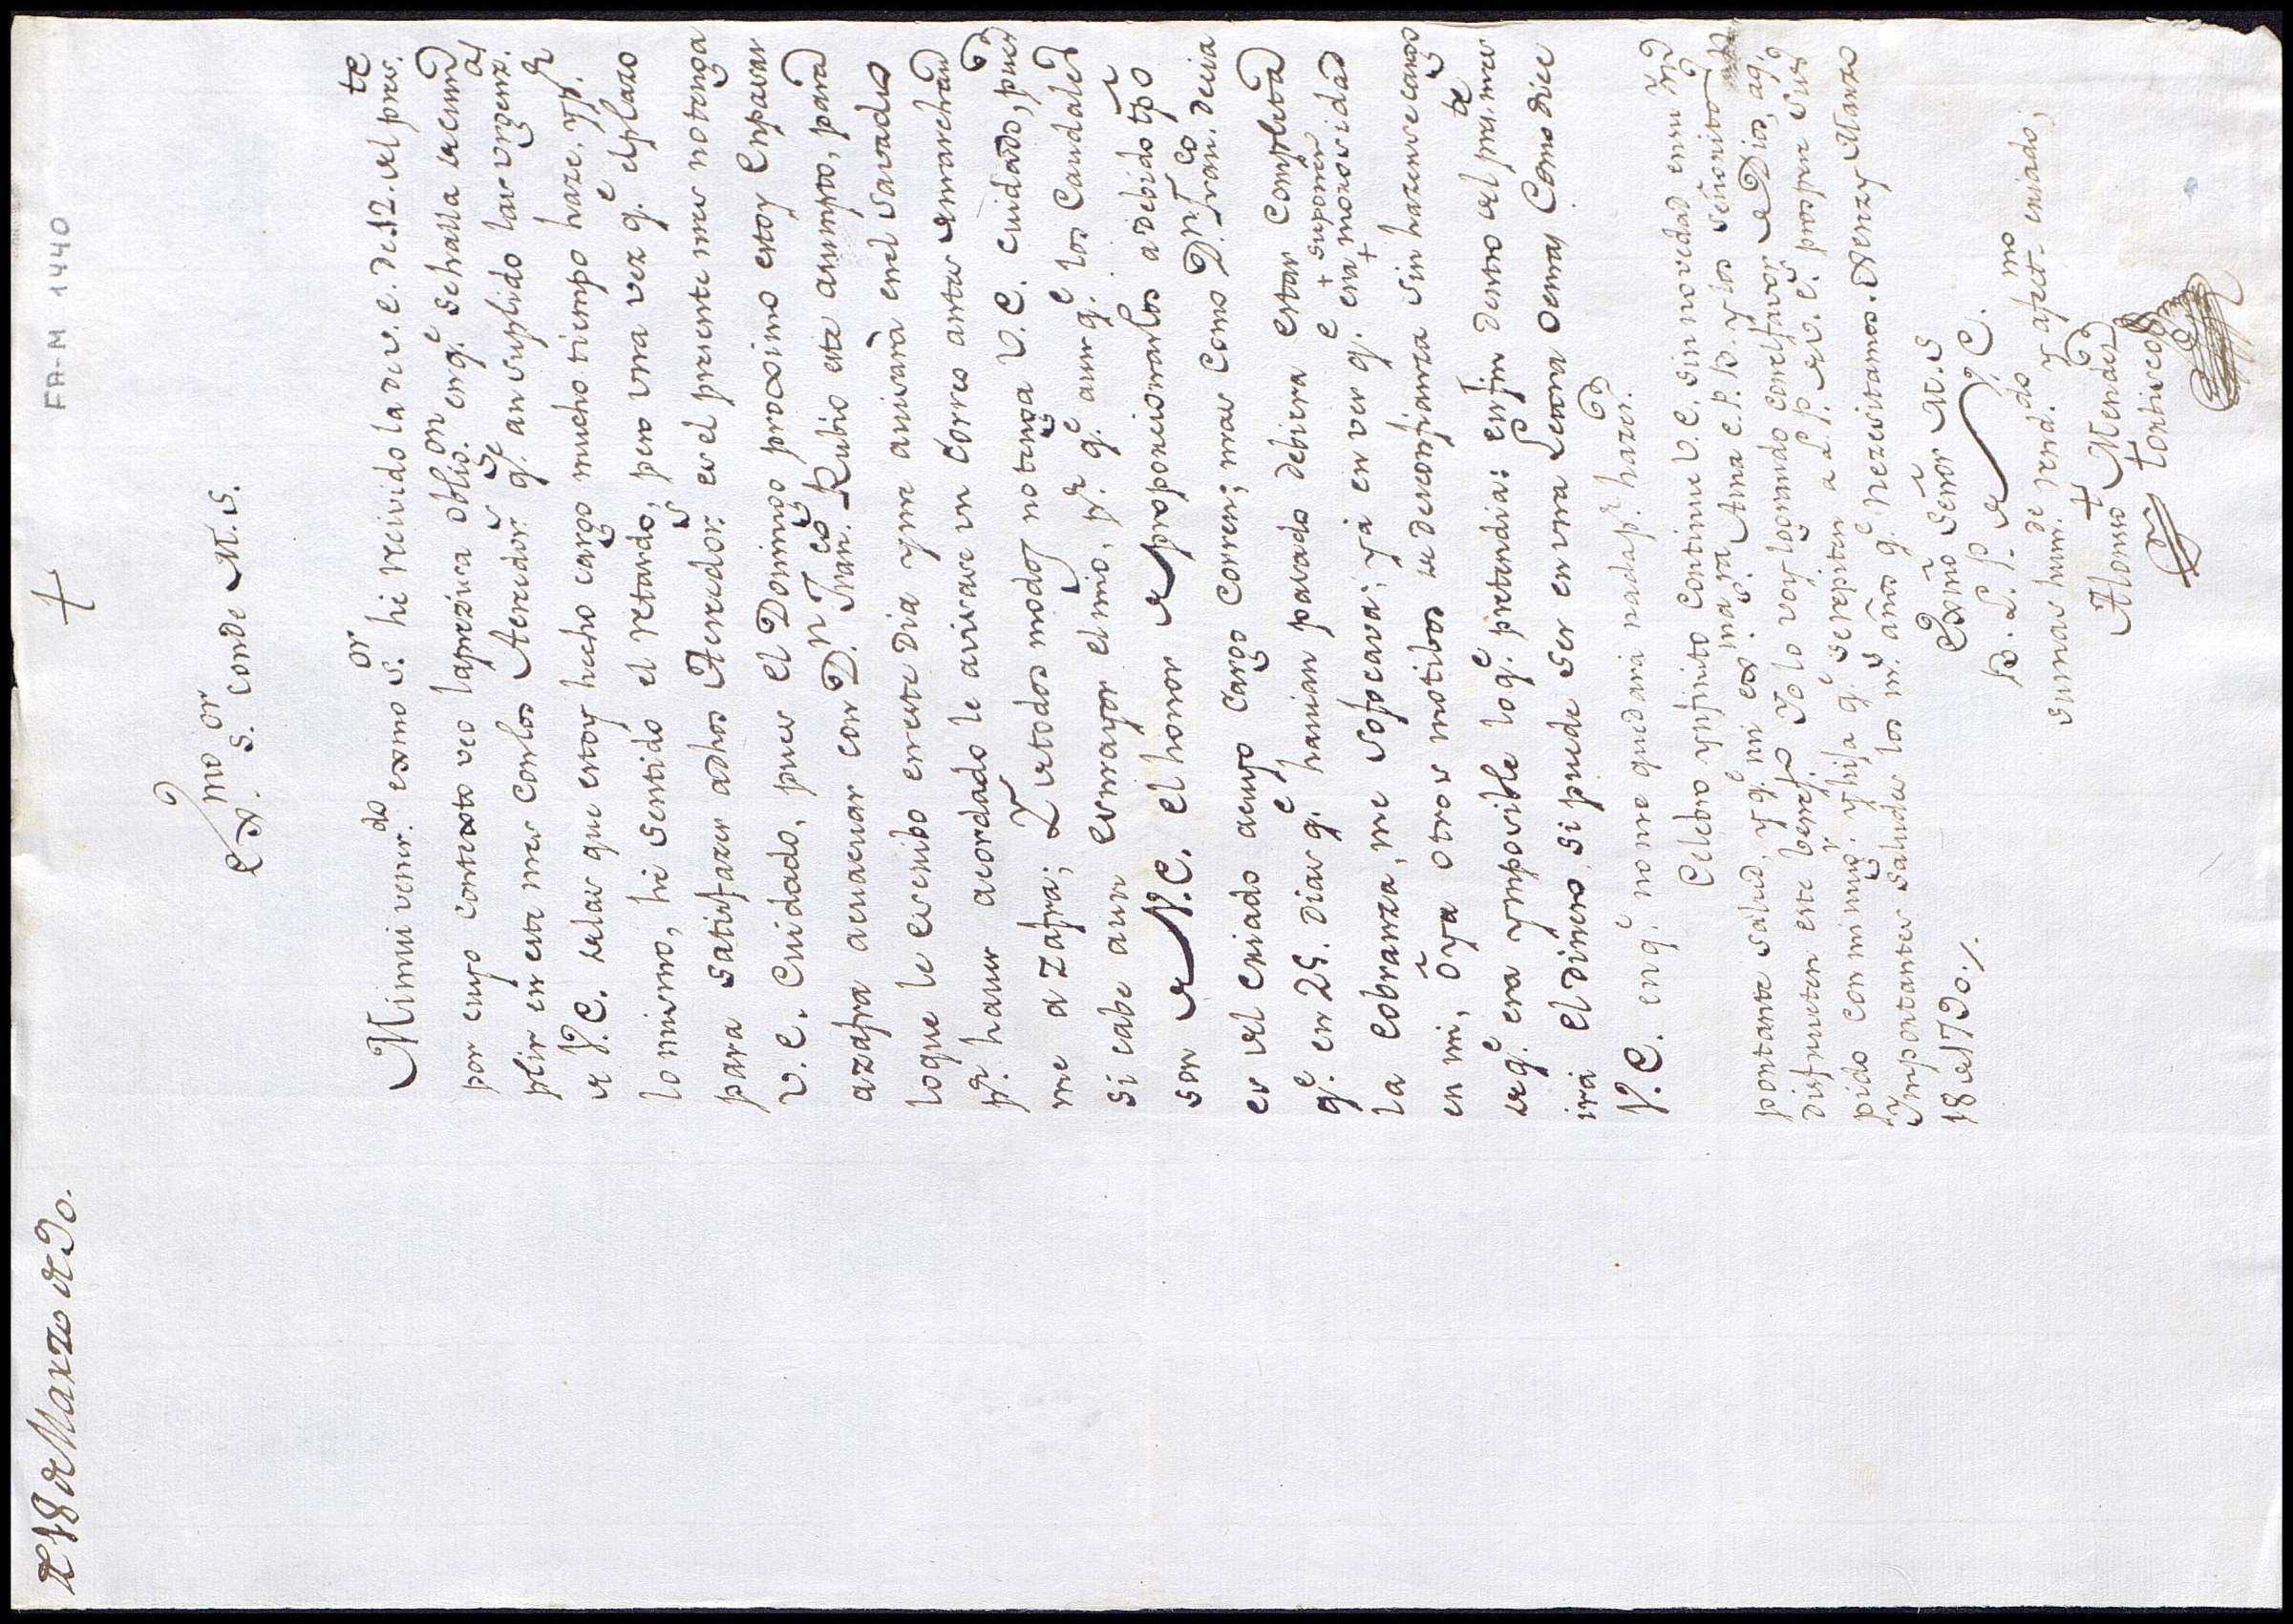 FA-M 1440
+
D 18 de Marzo de 90.
Exmo. Sor. conde M. S.
Mi mui venerdo. exmo Sor. he recivido la de V. E. de 12. del preste.
por cuyo contexto veo la preziva obligon. en qe. se halla de cum
plir en este mes con los Acredors. qe. an suplido las urgenzas.
de V. E. de las que estoy hecho cargo mucho tiempo haze, y pr.
lo mismo, he sentido el retardo, pero una vez qe. el plazo
para satisfazer a dhos Acredors. es el presente mes no tenga
V. E. Cuidado, pues el Domingo proximo estoy en pasar
a zafra a evacuar con Dn. Franco. Rubio este asumpto, para
loque le escribo en este dia y me avisarà en el savado
pr. haver acordado le avisase un correo antes de marchar
me a zafra; De todos modos no tenga V. E. cuidado, pues
si cabe aun es mayor el mio, pr. qe. aun qe. los Caudales
son de V. E. el honor de proporcionarlos a debido tpo
es del criado a cuyo cargo corren; mas como Dn. Franco. decia
qe. en 25. dias qe. havian pasado debiera estar completa
la cobranza, me sofocava; ya en ver qe. era + morosidad + suponer
en mi, ò ya otros motibos de desconfianza sin hazerse cargo
de qe. era ymposible lo qe. pretendia: en fin dentro del preste. mes
irà el dinero, si puede ser en una Letra o en mas como dice
V. E. en qe. no me quedarà nada pr. hazer.
Celebro ynfinito continue V. E. sin novedad en su ym
portante salud, y qe. mi exma. Sra. Ama C. P. B. y los señoritos
disfruten este benefo. Yo lo voy logrando con el favor de Dios, a q.
pido con mi mugr. y hija qe. se repiten a L. P. de V. E. prospere sus
Importantes saludes los ms. años qe. nezesitamos. Xerez y Marzo
18 de 1790./.
Exmo Señor M. S
B. L. P. de V. E.
su mas humde. rendo. y afectmo. criado;
Alonso Mendez
Tortisco